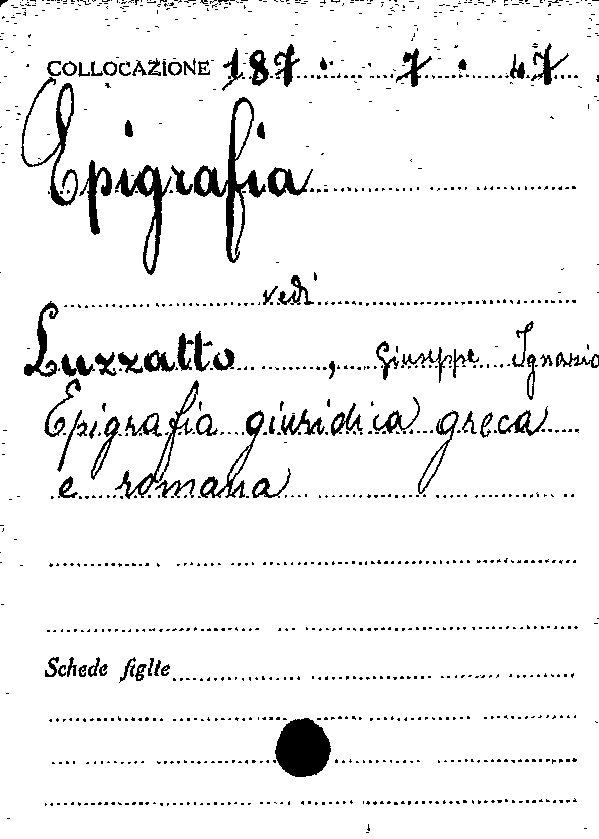 COLLOCAZIONE 187 . 7 . 47
Epigrafia
vedi
Luzzatto, Giuseppe Ignazio
Epigrafia giuridica greca
e romana
Schede figlie